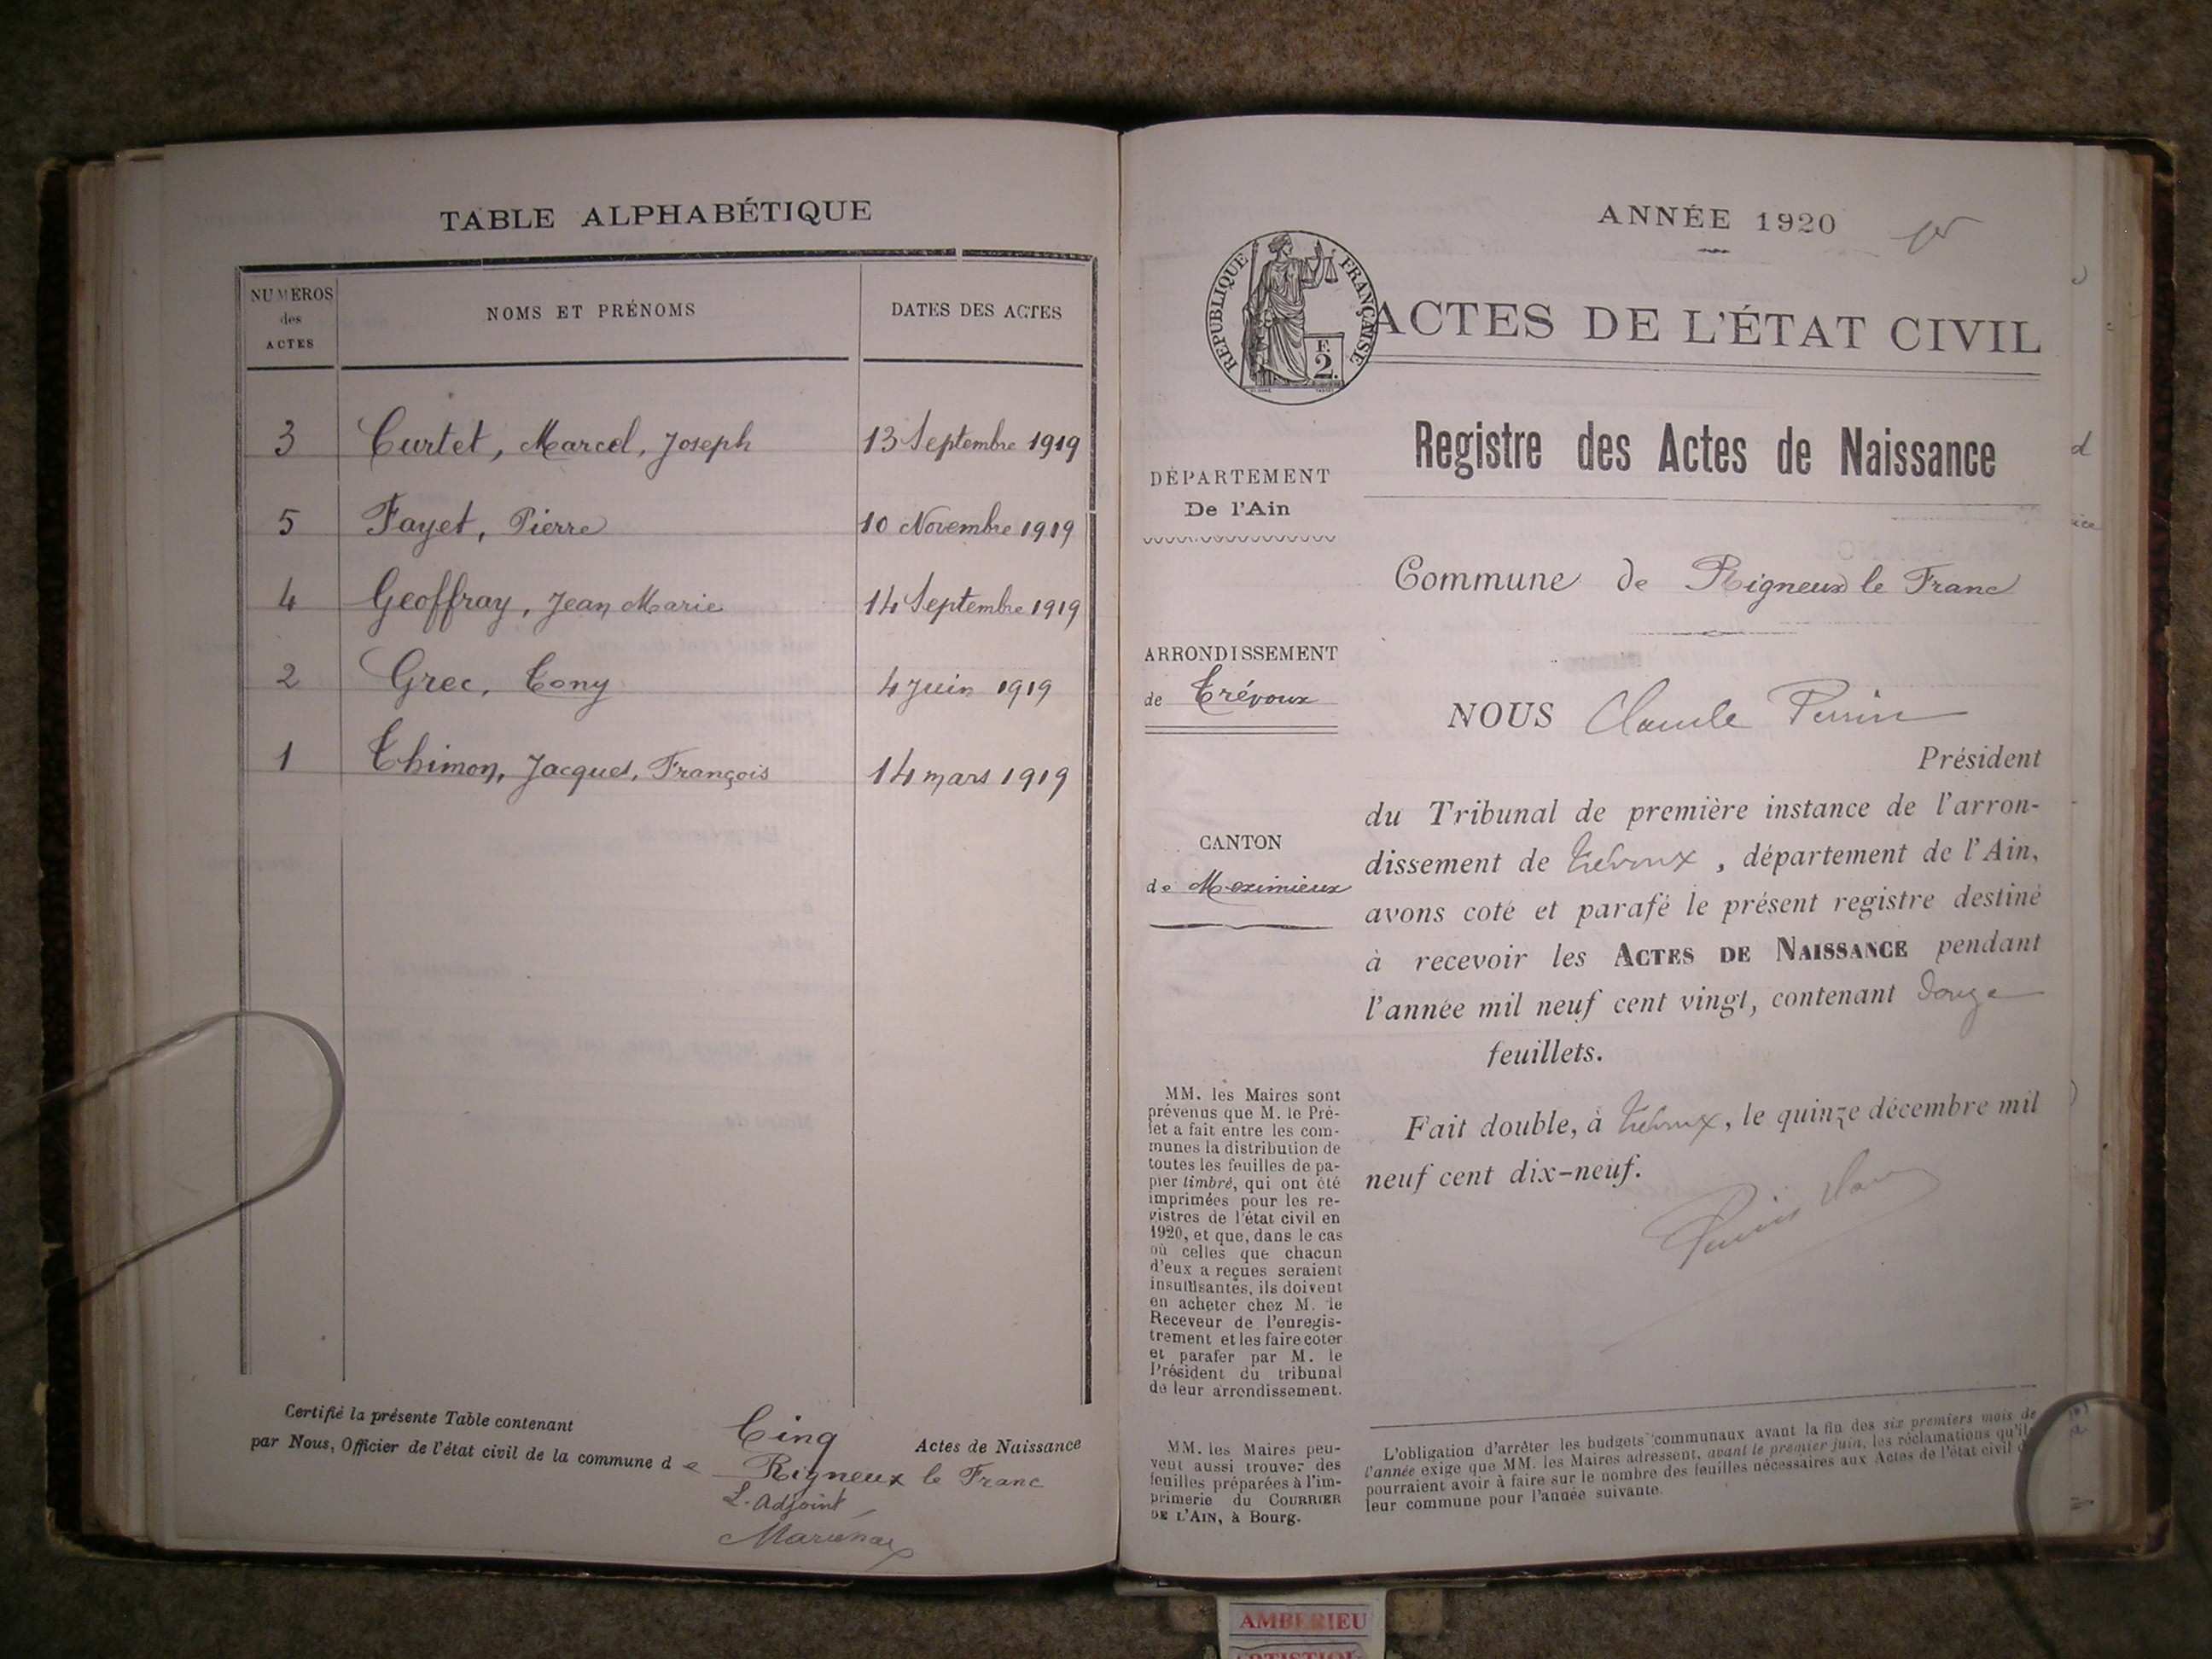 TABLE ALPHABÉTIQUE
NUMÉROS des ACTES
NOMS ET PRÉNOMS
DATES DES ACTES
3 Curtet, Marcel, Joseph 13 Septembre 1919
5 Fayet, Pierre 10 Novembre 1919
4 Geoffray, Jean Marie 14 Septembre 1919
2 Grec, Tony 4 Juin 1919
1 Thimon, Jacques, François 14 mars 1919
Certifié la présente Table contenant Cinq Actes de Naissance
par Nous, Officier de l'état civil de la commune de Rigneux le Franc
L'Adjoint
ANNÉE 1920
RÉPUBLIQUE FRANÇAISE
F.
2.
ACTES DE L'ÉTAT CIVIL
Registre des Actes de Naissance
DÉPARTEMENT
De l'Ain
Commune de Rigneux le Franc
ARRONDISSEMENT
de Trévoux
CANTON
de Meximieux
NOUS Claude Perrin
Président
du Tribunal de première instance de l'arron-
dissement de Trévoux, département de l'Ain,
avons coté et parafé le présent registre destiné
à recevoir les ACTES DE NAISSANCE pendant
l'année mil neuf cent vingt, contenant douze
feuillets.
Fait double, à Trévoux, le quinze décembre mil
neuf cent dix-neuf.
MM. les Maires sont
prévenus que M. le Pré-
fet a fait entre les com-
munes la distribution de
toutes les feuilles de pa-
pier timbré, qui ont été
imprimées pour les re-
gistres de l'état civil en
1920, et que, dans le cas
où celles que chacun
d'eux a reçues seraient
insuffisantes, ils doivent
en acheter chez M. le
Receveur de l'enregis-
trement et les faire coter
et parafer par M. le
Président du tribunal
de leur arrondissement.
MM. les Maires peu-
vent aussi trouver des
feuilles préparées à l'im-
primerie du COURRIER
DE L'AIN, à Bourg.
L'obligation d'arrêter les budgets communaux avant la fin des six premiers mois de
l'année exige que MM. les Maires adressent, avant le premier juin, les réclamations qu'ils
pourraient avoir à faire sur le nombre des feuilles nécessaires aux Actes de l'état civil de
leur commune pour l'année suivante.
AMBERIEU